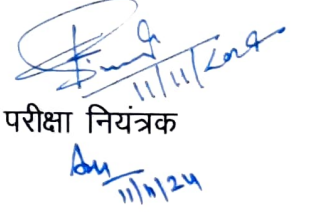 11/11/2024
परीक्षा नियंत्रक
11/11/24